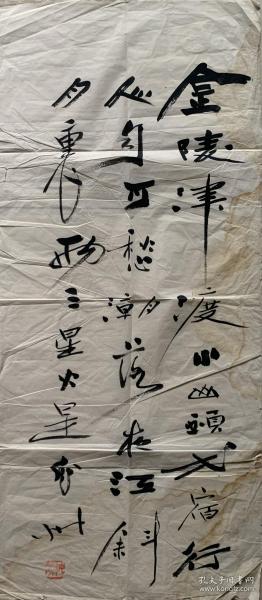 金陵津渡小山頭弌宿行
人自可愁潮落夜江斜
月裏两三星火是瓜州
孔夫子旧书网